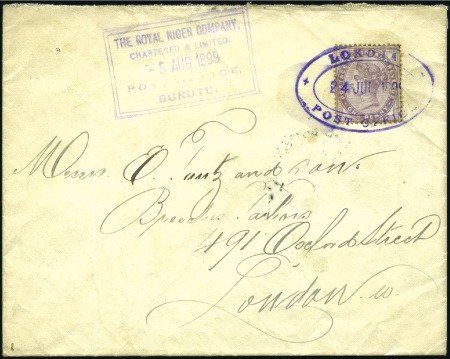 THE ROYAL NIGER COMPANY,
CHARTERED & LIMITED.
-5 AUG 1899
POST OFFICE,
BURUTU.
LOKOJA
24 JUL
POST OFFICE
Messrs E. Tautz and Sons
Breeches Tailors
491 Oxford Street
London W.